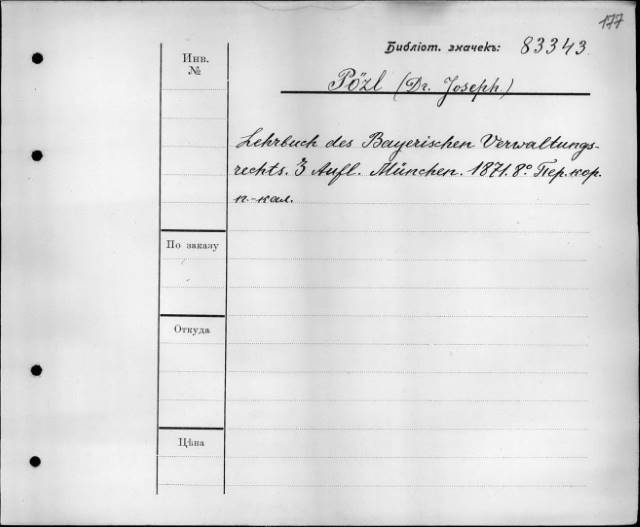 177
Библіот. значекъ: 83343
Инв.
№
Pözl (Dr. Joseph.)
Lehrbuch des Bayerischen Verwaltungs-
rechts. 3 Aufl. München. 1871. 8° Пер. кор.
п.-кал.
По заказу
Откуда
Цѣна